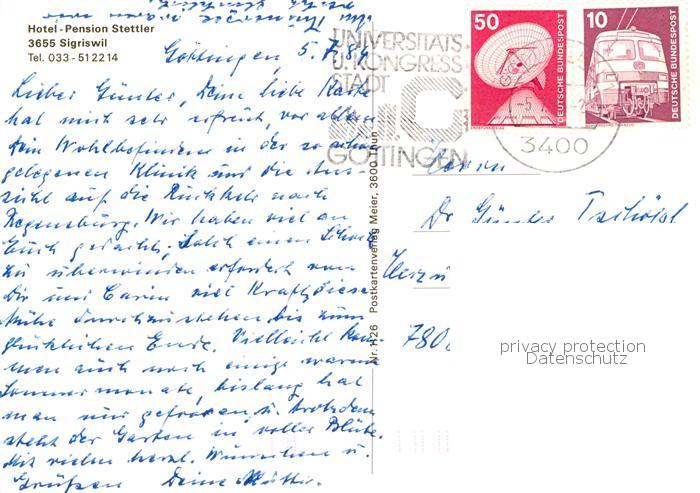 Hotel-Pension Stettler
3655 Sigriswil
Tel. 033-512214
Göttingen, 5.7.84
Lieber Günter, Deine liebe Karte
hat mich sehr erfreut, vor allem
Dein Wohlbefinden in der so schön
gelegenen Klinik und die Aus-
sicht auf die Rückkehr nach
Regensburg. Wir haben viel an
Euch gedacht. Solch einen Schock
zu überwinden erfordert von
Dir und Carin viel Kraft, diese
Mühe durchzustehen bis zum
glücklichen Ende. Vielleicht kom-
men auch noch einige warme
Sommermonate, bislang hat
man nur gefroren u. trotzdem
steht der Garten in voller Blüte.
Mit vielen herzl. Wünschen u.
Grüßen Deine Mutti.
Nr. H26 Postkartenverlag Meier, 3600 Thun
UNIVERSITÄTS-
U. KONGRESS
STADT
GÖTTINGEN
3400
50
DEUTSCHE BUNDESPOST
10
DEUTSCHE BUNDESPOST
Herrn
Dr Günter
780
privacy protection
Datenschutz